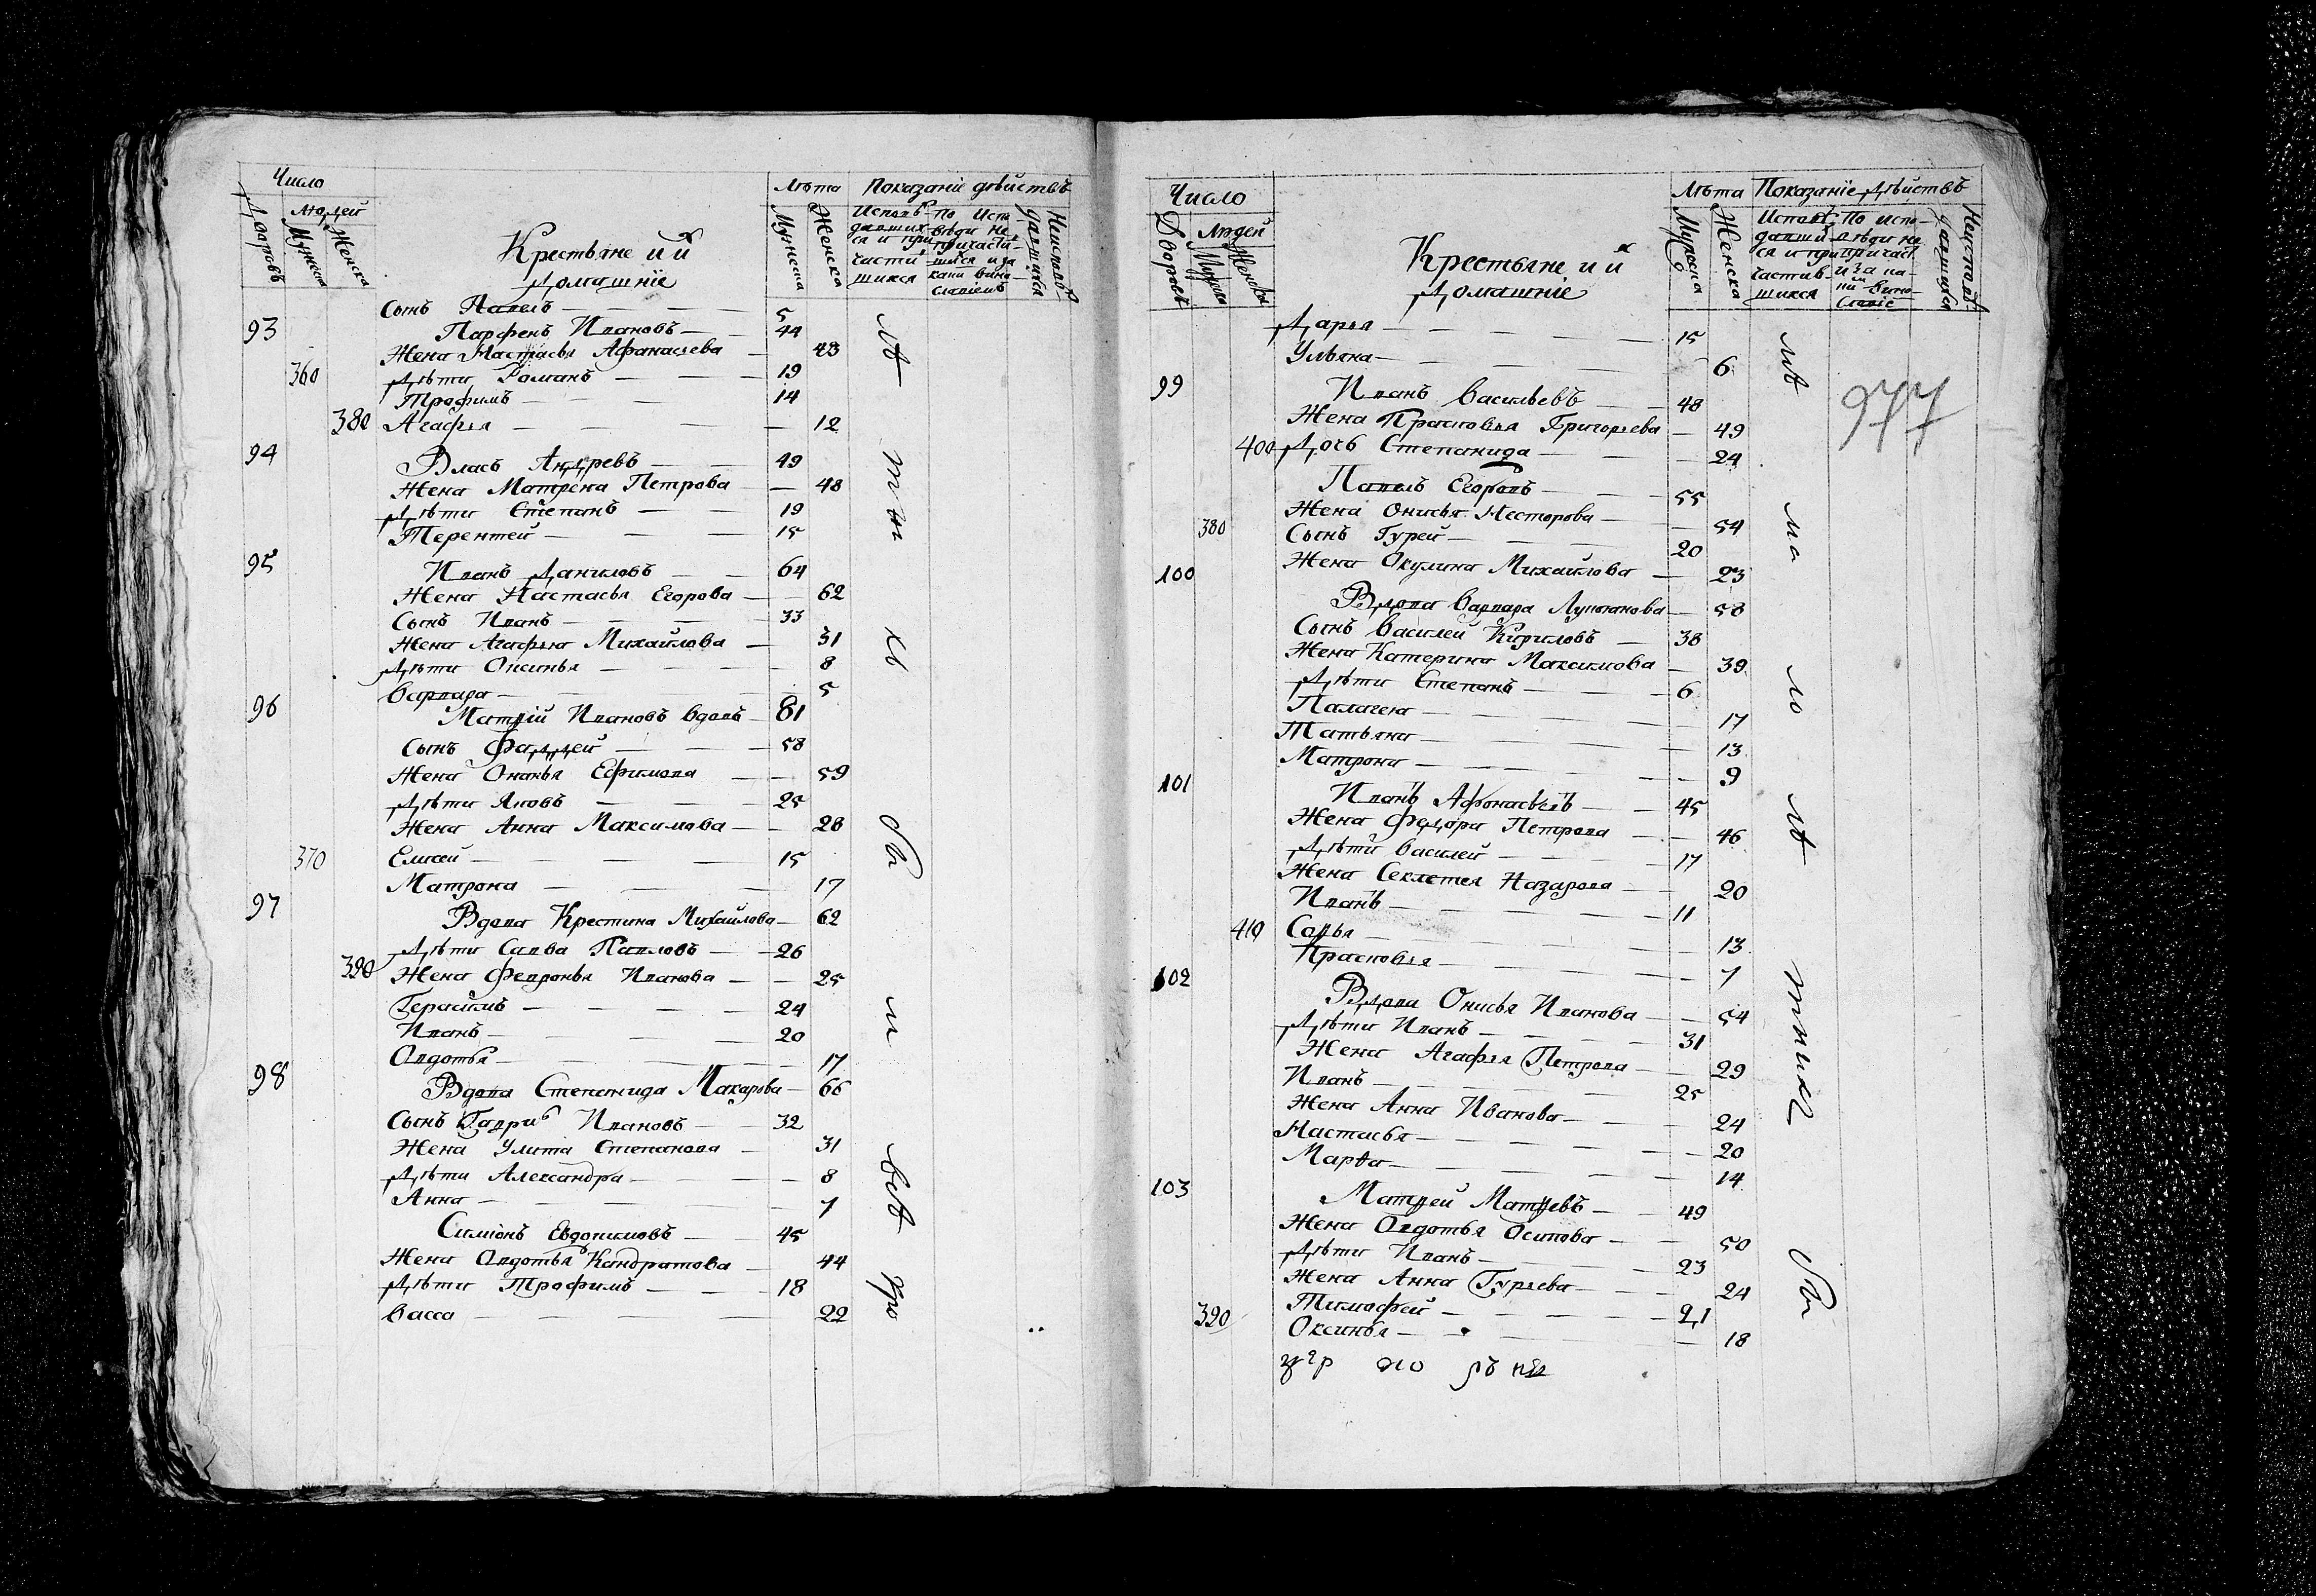 Число
Лѣта Показаніе дѣйствъ
Дворовъ
Людей
Мужеска
Женска
Крестьяне и ихъ
домашніе
Мужеска
Женска
Исповѣ- По испо-
давших- вѣди не
ся и при- причасти-
части-
шихся
Неисповѣ-
давшихся
Сынъ Павелъ — 5
93 Парфенъ Ивановъ — 44
Жена Настасья Афанасьева — 43
360 Дѣти Романъ — 19
Трофимъ — 14
380 Агафья — 12
94 Власъ Андревъ — 49
Жена Матрена Петрова — 48
Дѣти Степанъ — 19
Терентей — 15
95 Иванъ Даниловъ — 64
Жена Настасья Егорова — 62
Сынъ Иванъ — 33
Жена Агафья Михайлова — 31
Дѣти Оксинья — 8
Варвара — 5
96 Матвій Ивановъ вдовъ — 81
Сынъ Фаддей — 58
Жена Онисья Ефимова — 59
Дѣти Яковъ — 25
Жена Анна Максимова — 28
370 Елисей — 15
Матрона — 17
97 Вдова Крестина Михайлова — 62
Дѣти Савва Павловъ — 26
390 Жена Февронья Иванова — 25
Герасимъ — 24
Иванъ — 20
Овдотья — 17
98 Вдова Степанида Макарова — 66
Сынъ Гаври Ивановъ — 32
Жена Улита Степанова — 31
Дѣти Александра — 8
Анна — 7
Симіонъ Евдокимовъ — 45
Жена Овдотья Кондратова — 44
Дѣти Трофимъ — 18
Васса — 22
Число
Лѣта Показаніе дѣйствъ
Дворовъ
Людей
Мужеска
Женска
Крестьяне и ихъ
домашніе
Мужеска
Женска
Исповѣ- По испо-
давши- вѣди не
ся и при- причаст
частив-
шихся
Неисповѣ-
давшихся
977
Дарья — 15
Ульяна — 6
99 Иванъ Васильевъ — 48
Жена Прасковья Григорьева — 49
400 Дочь Степанида — 24
Павелъ Егоровъ — 55
Жена Онисья Несторова — 54
380 Сынъ Гурей — 20
Жена Окулина Михайлова — 23
100 Вдова Варвара Лукианова — 58
Сынъ Василей Кириловъ — 38
Жена Катерина Максимова — 39
Дѣти Степанъ — 6
Палагея — 17
Татьяна — 13
Матрона — 9
101 Иванъ Афонасьевъ — 45
Жена Федора Петрова — 46
Дѣти Василей — 17
Жена Секлетея Назарова — 20
Иванъ — 11
410 Савья — 13
Прасковья — 7
102 Вдова Онисья Иванова — 54
Дѣти Иванъ — 31
Жена Агафья Петрова — 29
Иванъ — 25
Жена Анна Иванова — 24
Настасья — 20
Марѳа — 14
103 Матвей Матвевъ — 49
Жена Овдотья Осипова — 50
Дѣти Иванъ — 23
Жена Анна Гурьева — 24
390 Тимофей — 21
Оксинья — 18